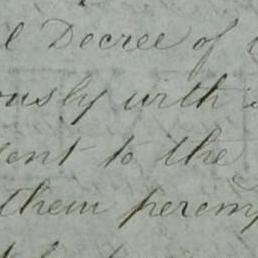 l Decree of
ously with
ent to the
them peremp